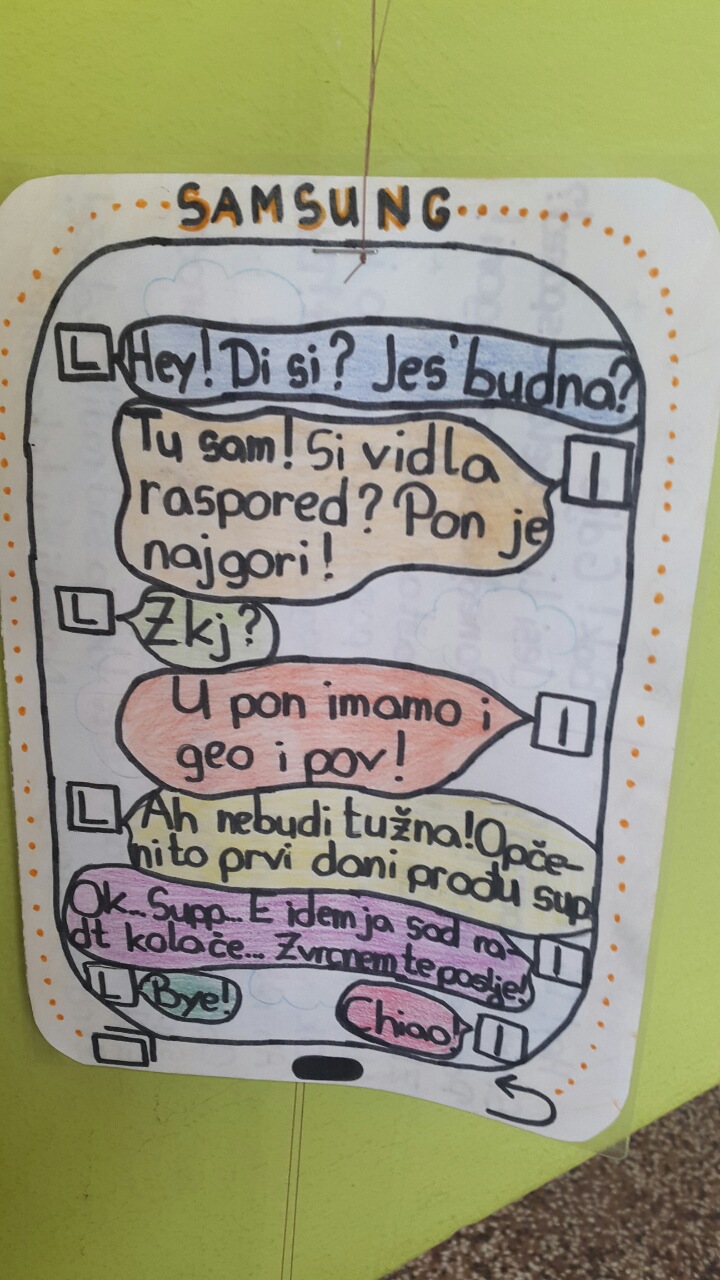 SAMSUNG
L
Hey! Di si? Jes' budna?
Tu sam! Si vidla
I
raspored? Pon je
najgori!
L
Zkj?
U pon imamo i
I
geo i pov!
L
Ah nebudi tužna! Opče-
nito prvi dani prođu sup
Ok... Supp... E idem ja sad ra-
I
dt kolače... Zvrcnem te poslje!
L
Bye!
Chiao!
I